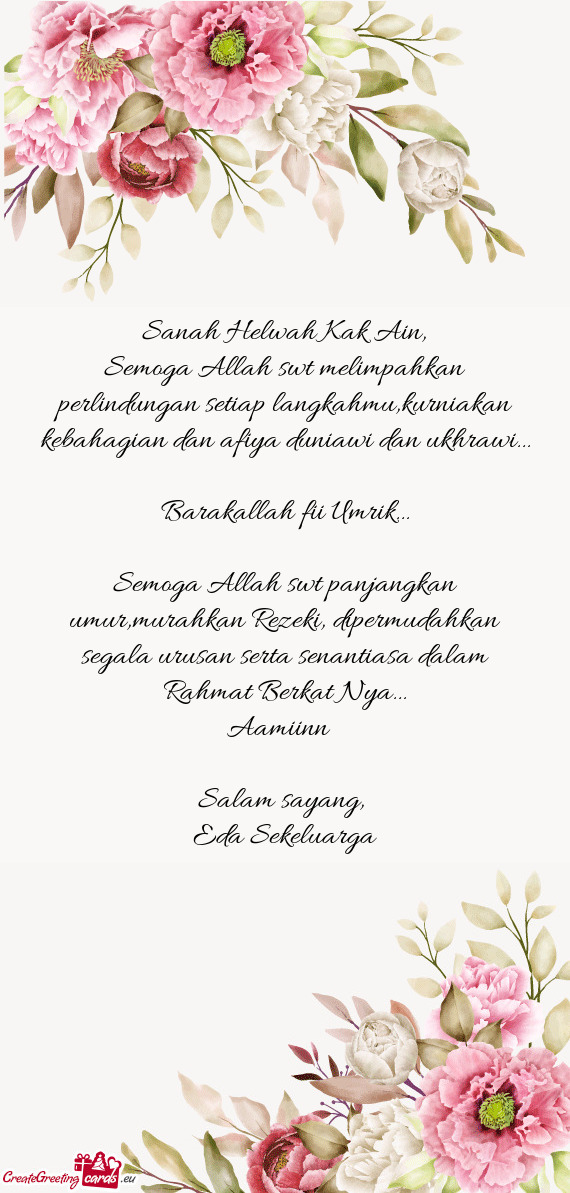 Sanah Helwah Kak Ain,
Semoga Allah swt melimpahkan
perlindungan setiap langkahmu,kurniakan
kebahagian dan afiya duniawi dan ukhrawi...
Barakallah fii Umrik...
Semoga Allah swt panjangkan
umur,murahkan Rezeki, dipermudahkan
segala urusan serta senantiasa dalam
Rahmat Berkat Nya...
Aamiinn
Salam sayang,
Eda Sekeluarga
CreateGreeting cards .eu